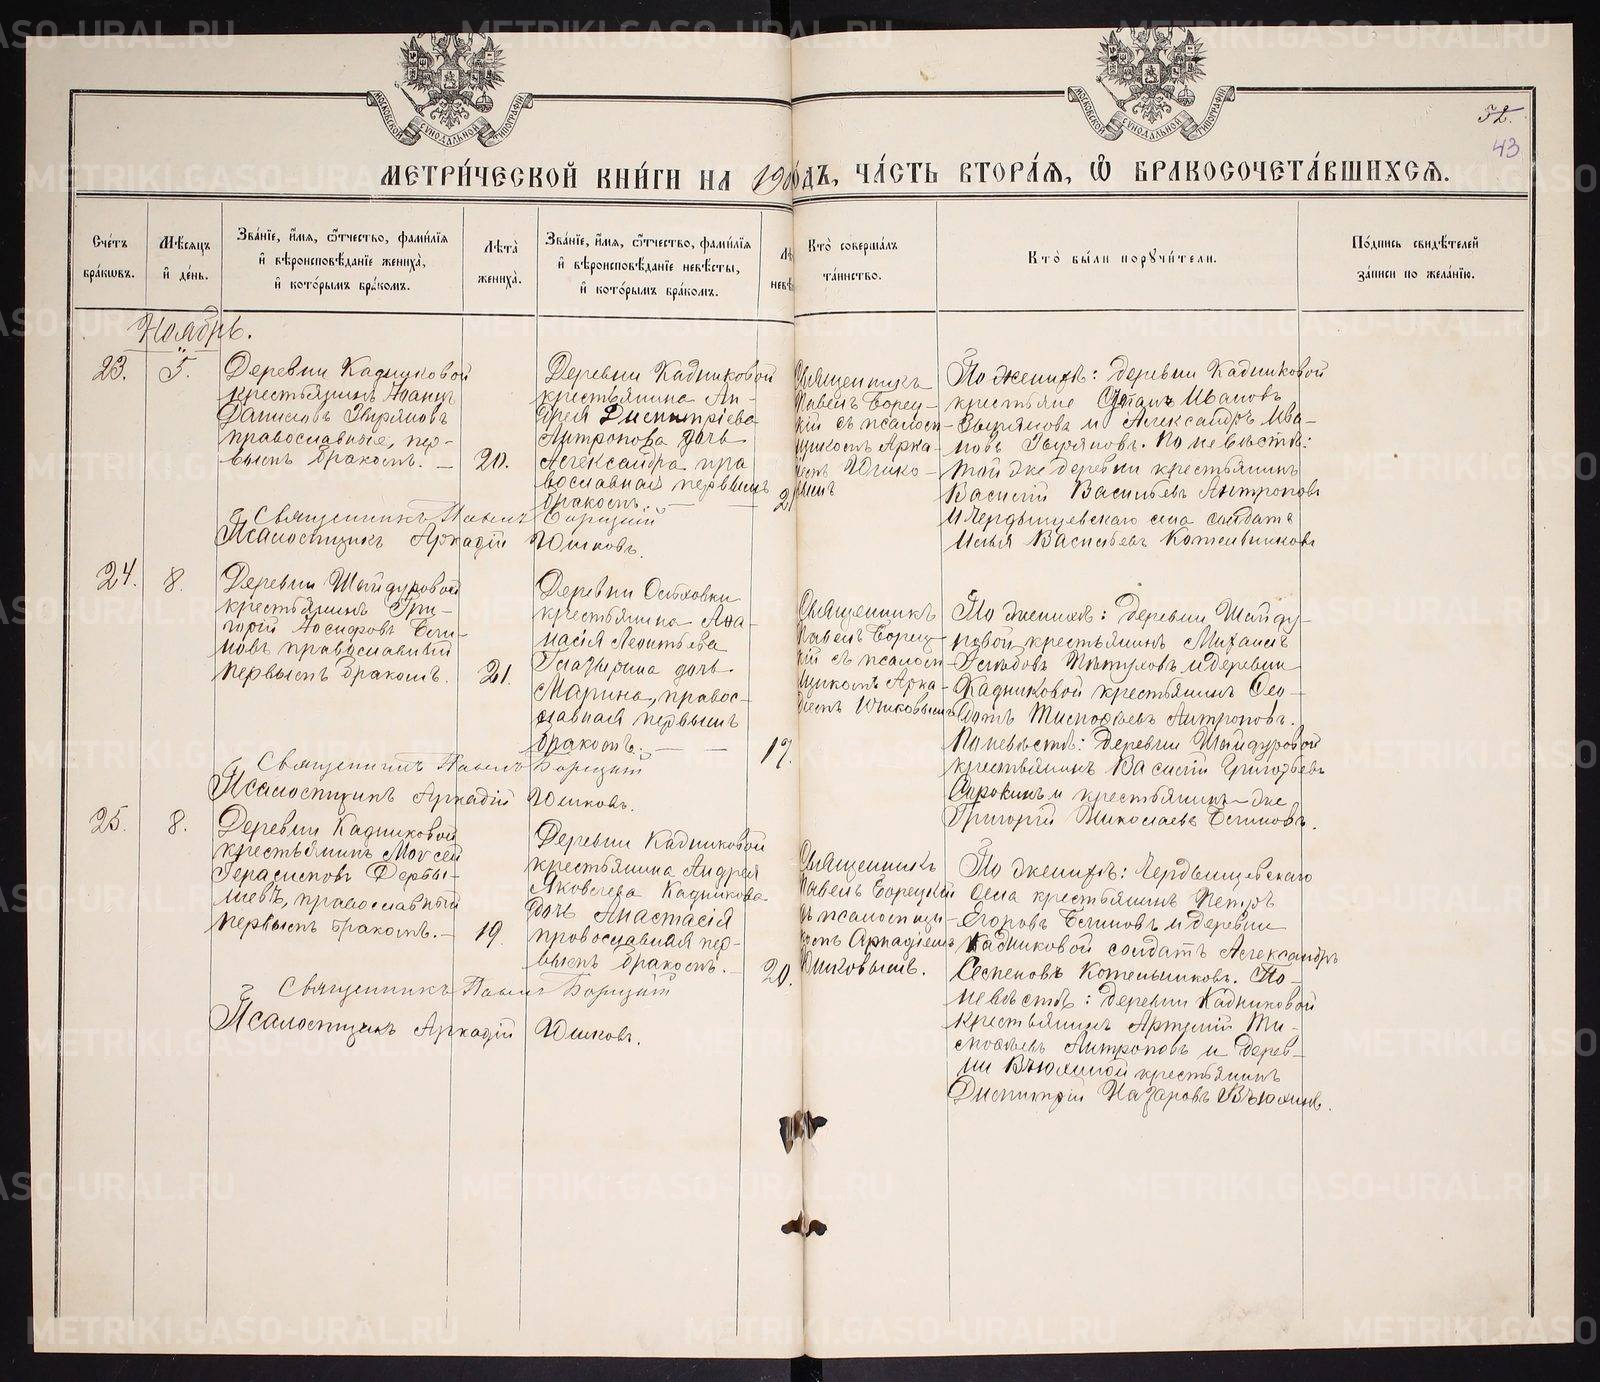 МОСКОВСКОЙ СѴНОДАЛЬНОЙ ТИПОГРАФІИ
МОСКОВСКОЙ СѴНОДАЛЬНОЙ ТИПОГРАФІИ
52.
43
МЕТРИ́ЧЕСКОЙ КНИ́ГИ НА 190 ГОДЪ, ЧА́СТЬ ВТОРА́Я, Ѽ БРАКОСОЧЕТА́ВШИХСЯ.
Сче́тъ бра́кѡвъ.
Мѣ́сяцъ и҆ де́нь.
Зва́нїе, и҆́мя, ѻ҆́тчество, фами́лїя и҆ вѣроисповѣ́данїе жениха̀, и҆ кото́рымъ бра́комъ.
Лѣта̀ жениха̀.
Зва́нїе, и҆́мя, ѻ҆́тчество, фами́лїя и҆ вѣроисповѣ́данїе невѣ́сты, и҆ кото́рымъ бра́комъ.
Кто̀ соверша́лъ та́инство.
Кто̀ бы́ли порꙋчи́тели.
По́дпись свидѣ́телей за́писи по жела́нїю.
Ноябрь.
23.
5.
Деревни Кадниковой
крестьянинъ Іоаннъ
Данииловъ Звиряновъ
православные, пер-
вымъ бракомъ. —
20.
Деревни Кадниковой
крестьянина Ан-
дрея Димитріева
Антропова дочь
Александра пра
вославная первымъ
бракомъ. — —
21
Священникъ
Павелъ Борец-
кій съ псалом-
щикомъ Арка-
діемъ Юшко-
вымъ
По женихѣ: деревни Кадниковой
крестьяне Иванъ Ивановъ
Звиряновъ и Александръ Ива-
новъ Звиряновъ. По невѣстѣ:
той же деревни крестьянинъ
Василій Васильевъ Антроповъ
и Чердынцевскаго села солдатъ
Илья Васильевъ Котельниковъ
Священникъ Павелъ Борецкій
Псаломщикъ Аркадій Юшковъ.
24.
8.
Деревни Шайдуровой
крестьянинъ Гри-
горій Іосифовъ Ести-
новъ православный
первымъ бракомъ.
21.
Деревни Осиновки
крестьянина Афа-
насія Леонтьева
Глазырина дочь
Марина, правос-
лавная первымъ
бракомъ. — —
19.
Священникъ
Павелъ Борец-
кій съ псалом-
щикомъ Арка-
діемъ Юшковымъ
По женихѣ: деревни Шайду-
ровой крестьянинъ Михаилъ
Глѣбовъ Пѣтуховъ и деревни
Кадниковой крестьянинъ Ѳео-
дотъ Тимоѳеевъ Антроповъ.
По невѣстѣ: деревни Шайдуровой
крестьянинъ Василій Григорьевъ
Сорокинъ и крестьянинъ-же
Григорій Николаевъ Естиновъ.
Священникъ Павелъ Борецкій
Псаломщикъ Аркадій Юшковъ.
25.
8.
Деревни Кадниковой
крестьянинъ Моѵсей
Герасимовъ Дербы-
шевъ, православный
первымъ бракомъ. —
19.
Деревни Кадниковой
крестьянина Андрея
Яковлева Кадникова
дочь Анастасія
провославная пер-
вымъ бракомъ. —
20.
Священникъ
Павелъ Борецкій
съ псаломщи-
комъ Аркадіемъ
Юшковымъ.
По женихѣ: Чердынцевскаго
села крестьянинъ Петръ
Егоровъ Естиновъ и деревни
Кадниковой солдатъ Александръ
Семеновъ Котельниковъ. По-
невѣстѣ: деревни Кадниковой
крестьянинъ Артемій Ти-
моѳеевъ Антроповъ и дерев-
ни Вьюхиной крестьянинъ
Димитрій Назаровъ Вьюхинъ.
Священникъ Павелъ Борецкій
Псаломщикъ Аркадій Юшковъ.
METRIKI.GASO-URAL.RU